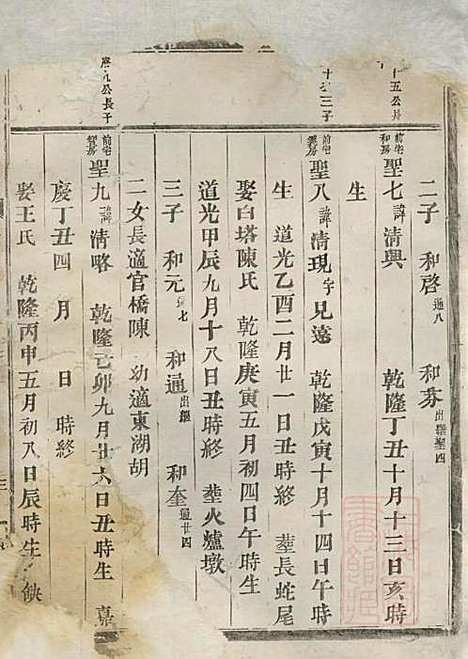 二子 和啓 通八 和芬 出繼聖四
十五公
前宅 和房 聖七 諱 清興 乾隆丁丑十月十三日亥時
生
前宅 聖八 諱 清現 字 見遠 乾隆戊寅十月十四日午時
生 道光乙酉二月廿一日丑時終 塟長蛇尾
娶白塔陳氏 乾隆庚寅五月初四日午時生
道光甲辰九月十八日丑時終 塟火爐墩
三子 和元 通七 和通 出繼 和奎 通廿四
二女長適官橋陳 幼適東湖胡
公長子
前宅 聖九 諱 清略 乾隆己卯九月廿六日丑時生 嘉
慶丁丑四月 日 時終
娶王氏 乾隆丙申五月初八日辰時生 缺